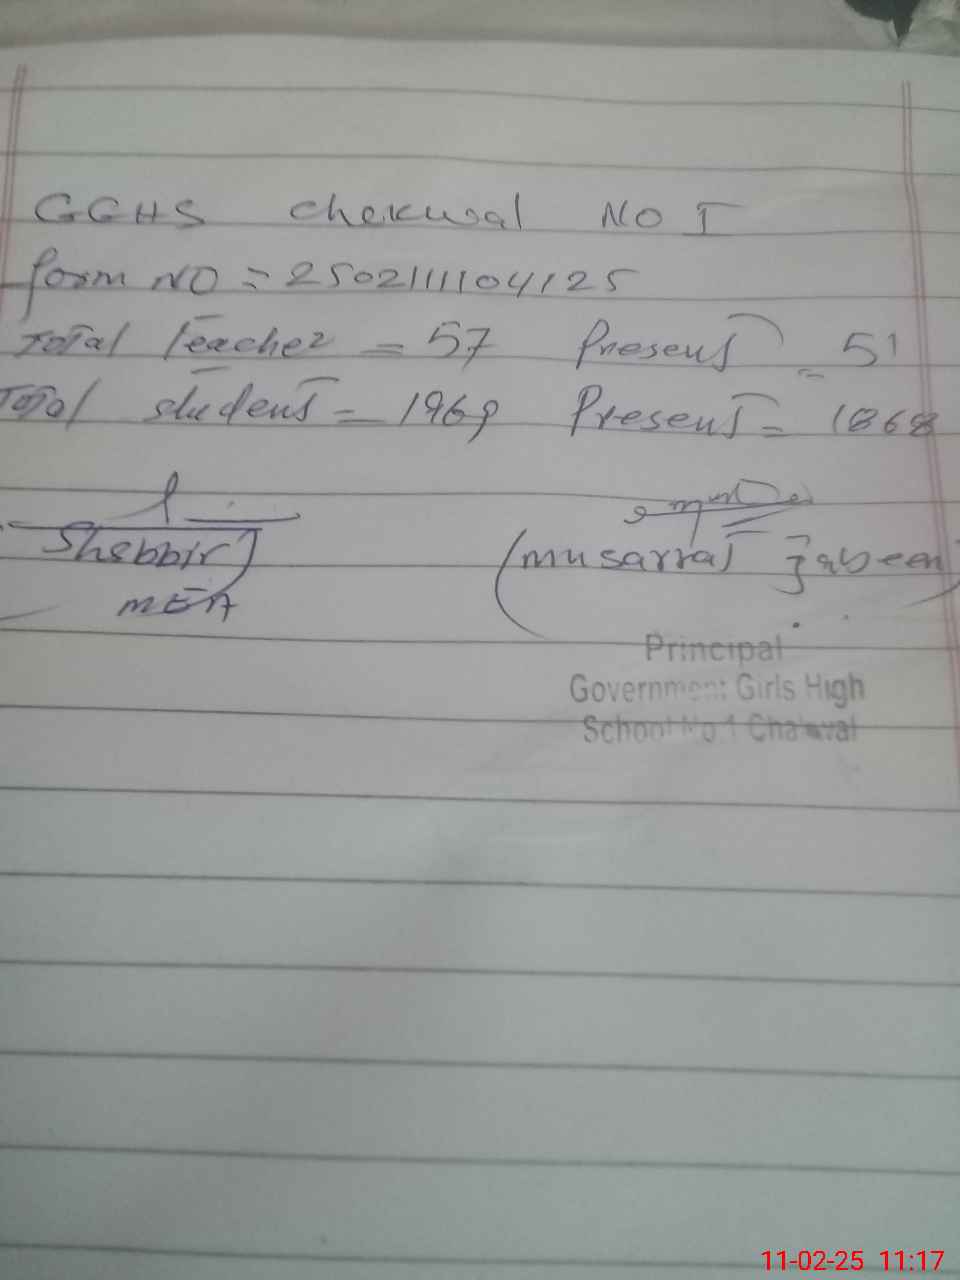 GGHS Chakwal NO I
form NO = 250211104125
Total Teacher = 57 Present = 51
Total student = 1969 Present = 1868
Shabbir)
MEA
(musarrat Jabeen)
Principal
Government Girls High
School No.1 Chakwal
11-02-25 11:17